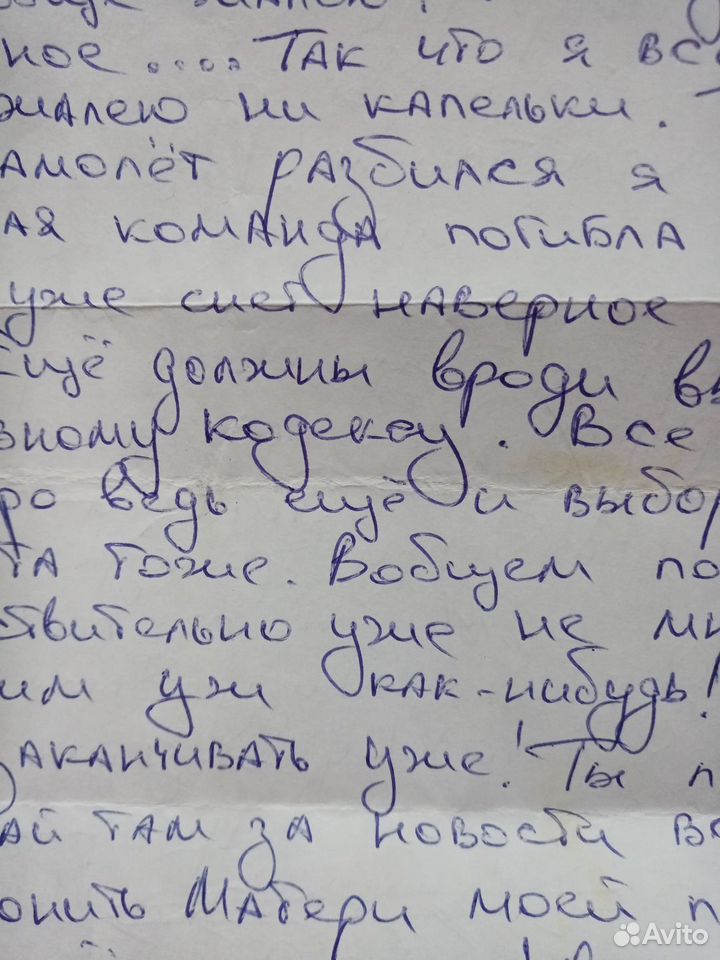 ное .... Так что я вс
жалею ни капельки. Т
амолёт разбился я
ая команда погибла
уже снег наверное
Ещё должны вроди вы
вному кодексу. Все
ро ведь ещё и выбор
та тоже. Вобщем по
ствительно уже не мн
им ужи как-нибудь!
заканчивать уже! Ты п
ай там за новости в
онить Матери моей п
Avito